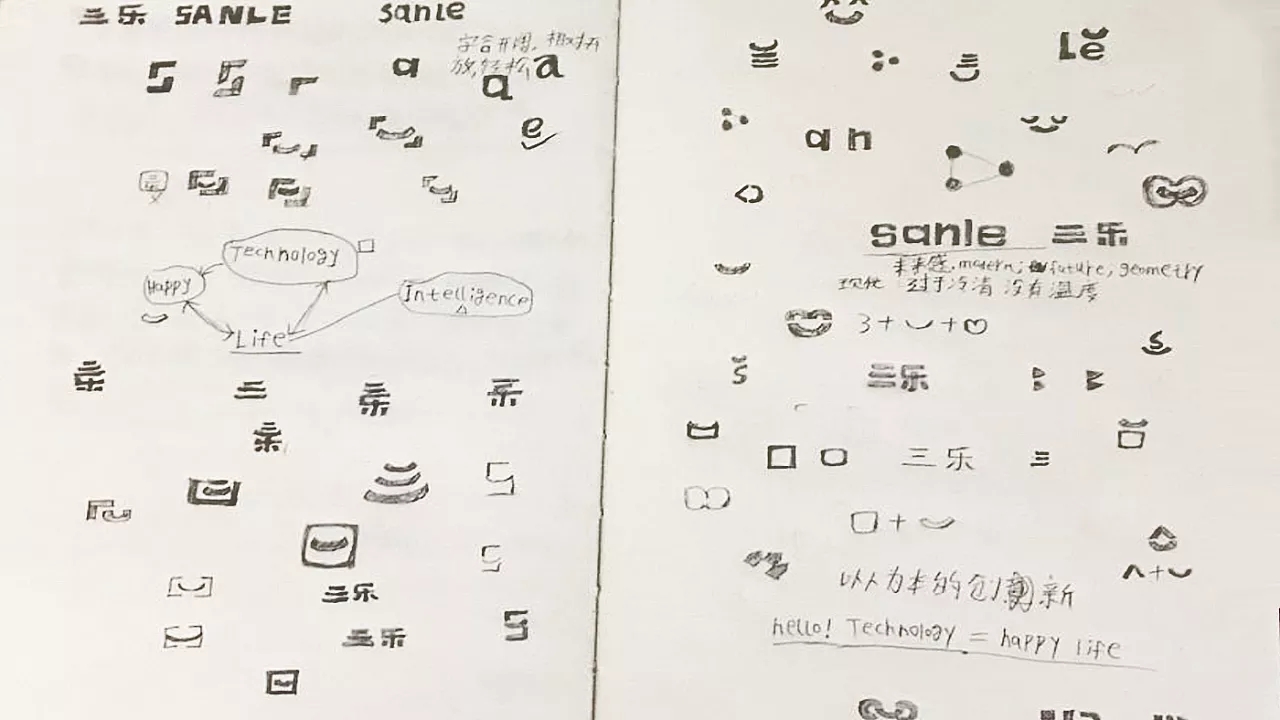 三乐 SANLE sanle
字合开阔,相对开
放,轻松
S S
a a a
e
Technology
Happy
Intelligence
Life
三乐
三乐
S
S
S
Le
a n
sanle 三乐
未来感, modern; future; geometry
现代 过于冷清 没有温度
3 +
s
s
三乐
三乐
+
以人为本的创新
+
hello! Technology = happy life